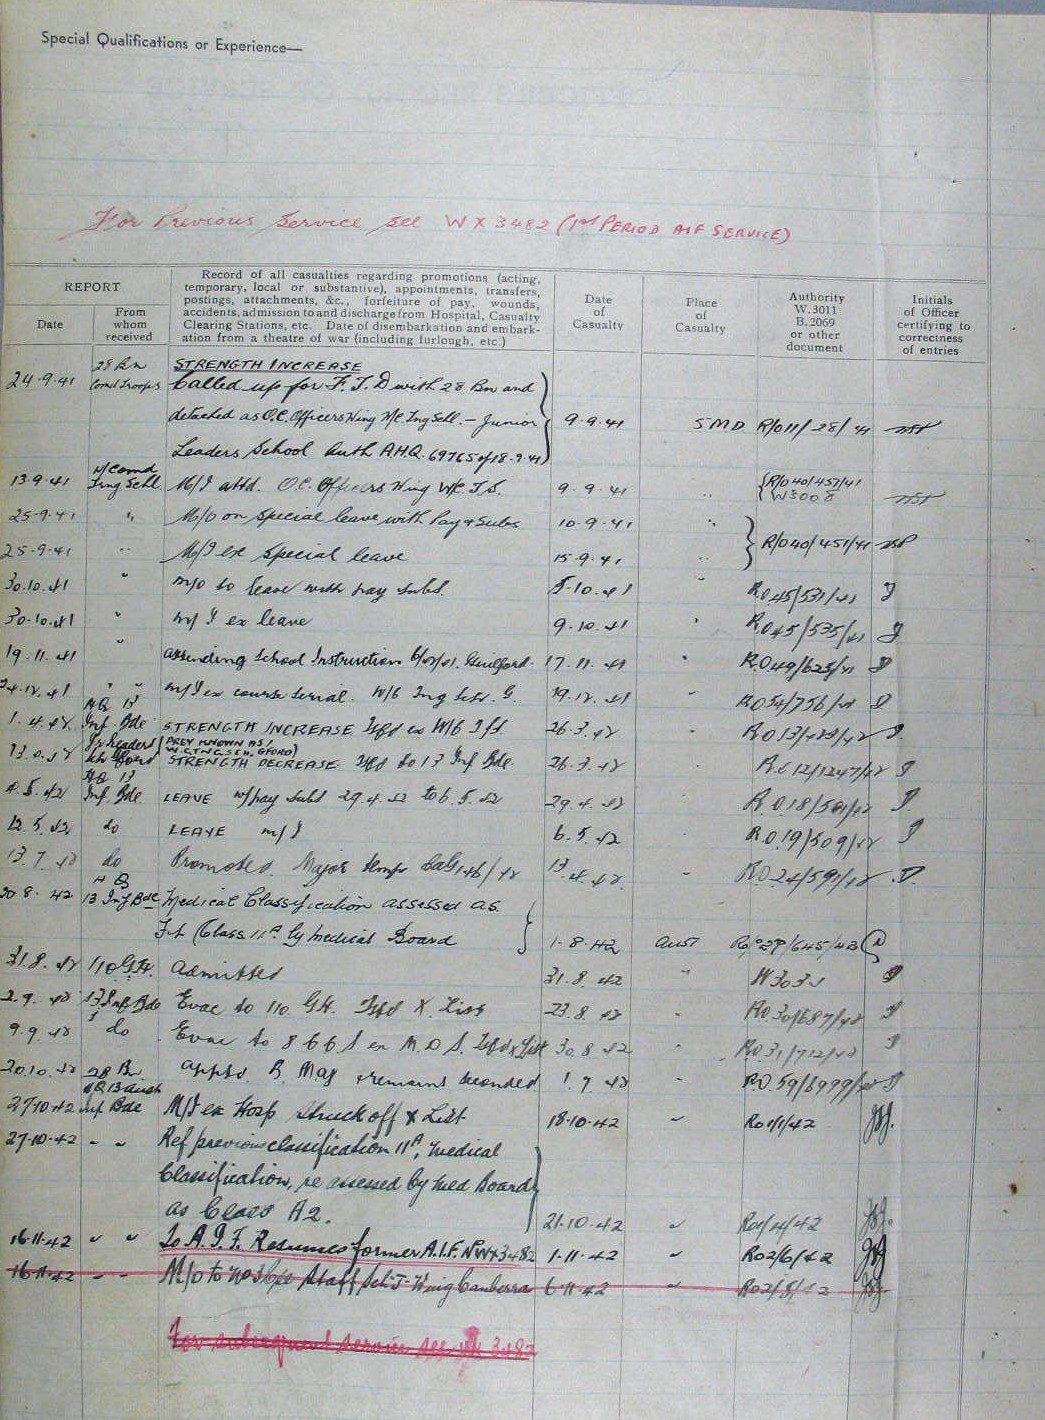 Special Qualifications or Experience—
For Previous Service see WX3482 (1st PERIOD AIF SERVICE)
REPORT
Date
From whom received
Record of all casualties regarding promotions (acting,
temporary, local or substantive), appointments, transfers,
postings, attachments, &c., forfeiture of pay, wounds,
accidents, admission to and discharge from Hospital, Casualty
Clearing Stations, etc. Date of disembarkation and embark-
ation from a theatre of war (including furlough, etc.)
Date of Casualty
Place of Casualty
Authority W.3011 B.2069 or other document
Initials of Officer certifying to correctness of entries
28 Bn STRENGTH INCREASE
24-9-41 Called up for F.T.D with 28 Bn and
detached as O.C. Officers Wing W/C Tng Sch. – Junior 9-9-41 5MD R/011/28/41
Leaders School Auth AHQ. 69765 of 18-9-41
13-9-41 W/Comd Tng Schl M/I attd. O.C. Officers Wing W/C T.S. 9-9-41 R/040/451/41 W3008
25-9-41 " M/O on special leave with Pay & Subs 10-9-41
25-9-41 " M/I ex special leave 15-9-41 R/040/451/41
30.10.41 " m/o to leave with pay subs. 5-10-41 R.045/531/41
30-10-41 " m/I ex leave 9.10.41 R.045/535/41
19.11.41 " attending School Instruction Guildford 17.11.41 R.049/623/41
m/I ex course 19.12.41 R054/756/41
1.4.42 HQ 13 Inf. Bde STRENGTH INCREASE 26-3-42
Jr Leaders (PREV KNOWN AS W.C.TNG.SCH, GFORD)
STRENGTH DECREASE to 13 Inf Bde. 26-3-42 R.012/1247/42
4.5.42 HQ 13 Inf. Bde LEAVE w/pay subs 29.4.42 to 6.5.42 29.4.42 R.018/501/42
12.5.42 do LEAVE m/I 6.5.42 R.019/509/42
13.7.42 do Promoted Major temp 13.4.42 R024/591/42
30 8. 42 HQ 13 Inf Bde Medical Classification assessed as
Fit (Class IIA by Medical Board 1-8-42 Aust
31.8.42 110 G.H. Admitted 31.8.42
2.9.42 13 Inf Bde Evac to 110 GH. X List 23.8.42 R0.30/687/42
9.9.42 do Evac to 30.8.42 R0.31/712/42
20.10.42 28 Bn remains seconded 1.7.42 R.O.59/6999/42
27-10-42 HQ 13 Aust Inf Bde M/I ex Hosp struck off X List 18-10-42 Ro1/1/42
27-10-42 " " Ref previous classification IIA, medical
Classification, re assessed by Med Board
as Class A2. 21-10-42 Ro1/4/42
16-11-42 " " To A.I.F. Resumes former A.I.F. No WX3482 1-11-42 Ro2/6/42
16-11-42 " " M/O to Staff Sch Wing Canberra 6-11-42 Ro2/8/42
For subsequent service see WX 3482